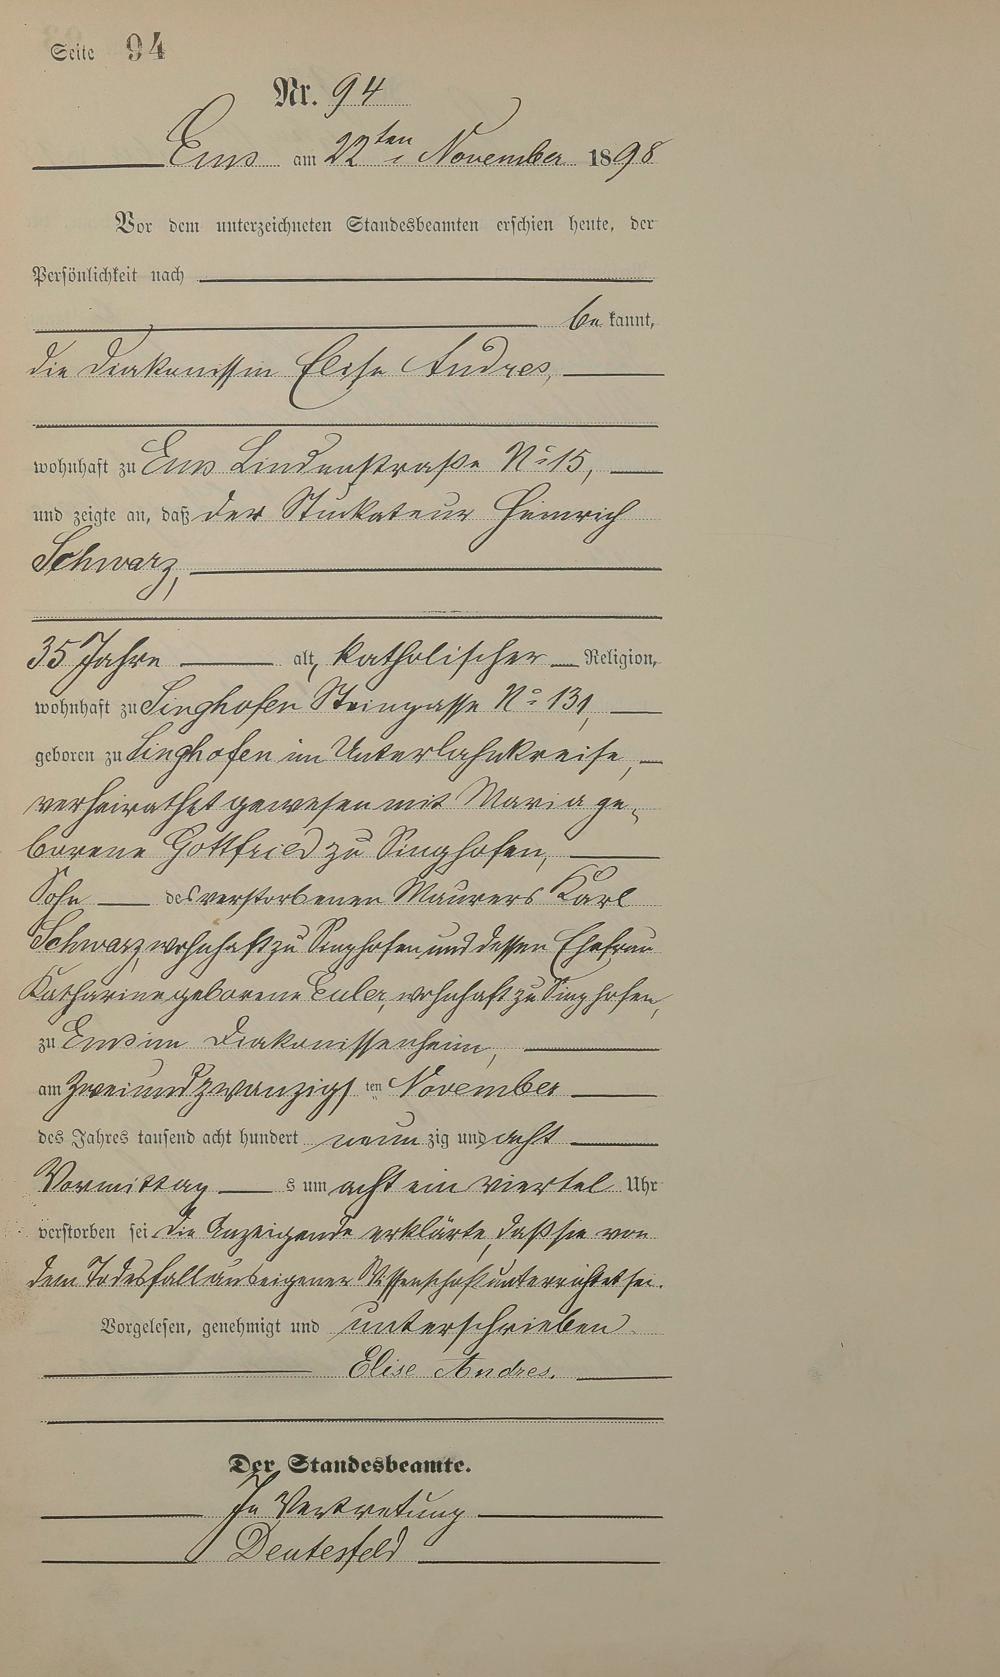 Seite 94
Nr. 94
Ems am 22ten November 1898
Vor dem unterzeichneten Standesbeamten erschien heute, der
Persönlichkeit nach
be kannt,
die Diakonissin Elise Andres,
wohnhaft zu Ems Lindenstraße No 15,
und zeigte an, daß der Stuckateur Heinrich
Schwarz,
35 Jahre alt, katholischer Religion,
wohnhaft zu Singhofen Steingasse No 131,
geboren zu Singhofen im Unterlahnkreise,
verheirathet gewesen mit Maria ge-
borene Gottfried zu Singhofen,
Sohn des verstorbenen Maurers Karl
Schwarz, wohnhaft zu Singhofen und dessen Ehefrau
Katharine geborene Euler, wohnhaft zu Singhofen,
zu Ems im Diakonissenheim,
am zweiundzwanzigsten November
des Jahres tausend acht hundert neun zig und acht
Vormittag s um acht ein viertel Uhr
verstorben sei. Die Anzeigende erklärte, daß sie von
dem Todesfall aus eigener Wissenschaft unterrichtet sei.
Vorgelesen, genehmigt und unterschrieben.
Elise Andres.
Der Standesbeamte.
In Vertretung